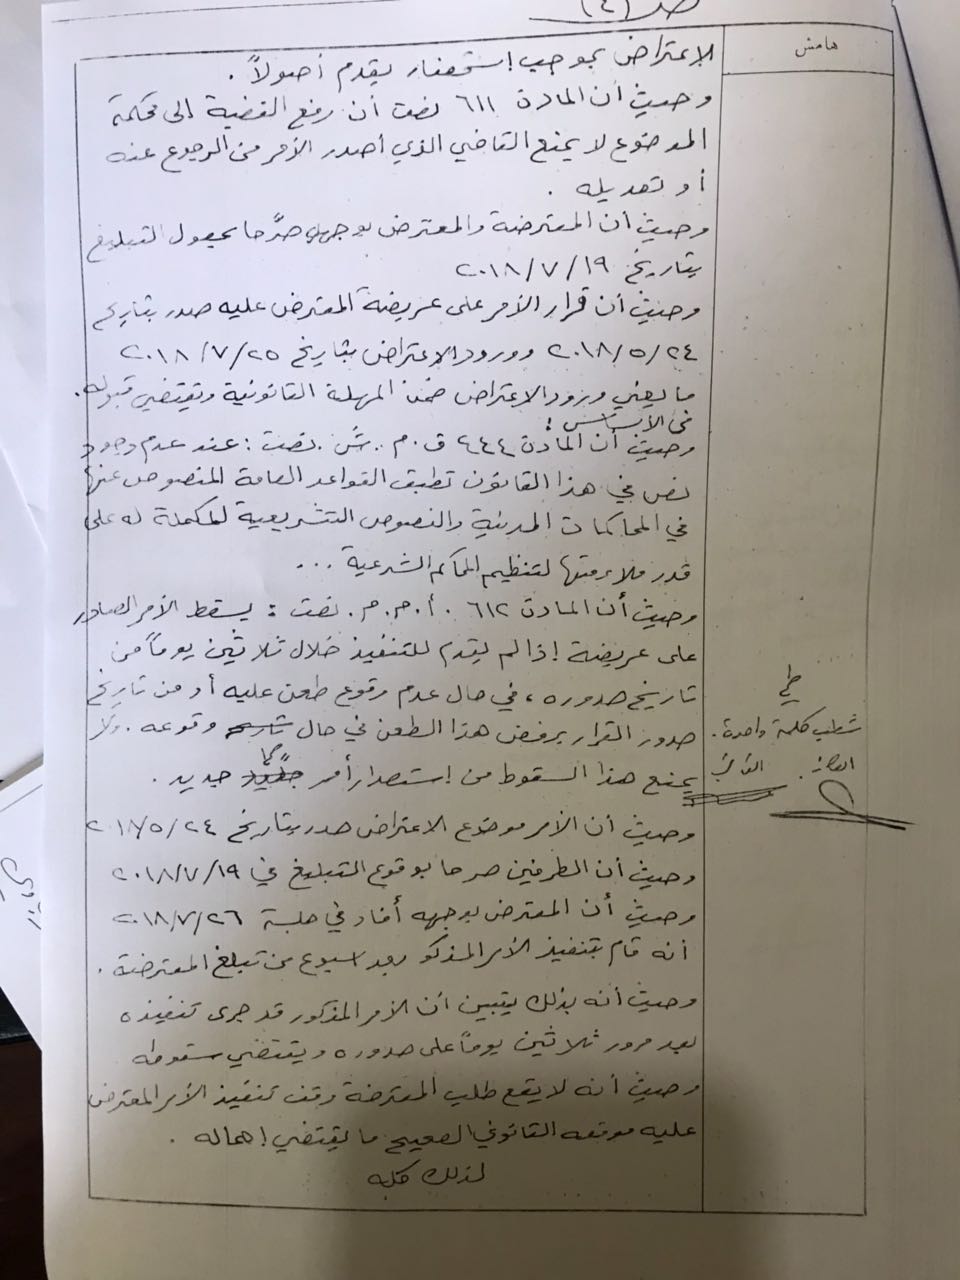 ص (٤)
هامش
الإعتراض بموجب إستحضار يقدم أصولاً .
وحيث أن المادة ٦١١ نصت أن رفع القضية الى محكمة
الموضوع لا يمنع القاضي الذي أصدر الأمر من الرجوع عنه
أو تعديله .
وحيث أن المعترضة والمعترض بوجهه صرّحا بحصول التبليغ
بتاريخ ٢٠١٨/٧/١٩
وحيث أن قرار الأمر على عريضة المعترض عليه صدر بتاريخ
٢٠١٨/٥/٢٤ وورود الإعتراض بتاريخ ٢٠١٨/٧/٢٥
ما يعني ورود الإعتراض ضمن المهلة القانونية ويقتضي قبوله .
في الأساس :
وحيث أن المادة ٤٤٤ ق . م . ش . نصت : عند عدم وجود
نص في هذا القانون تطبق القواعد العامة المنصوص عنها
في المحاكمات المدنية والنصوص التشريعية المكملة له على
قدر ملاءمتها لتنظيم المحاكم الشرعية ...
وحيث أن المادة ٦١٢ . أ . م . م . نصت : يسقط الأمر الصادر
على عريضة إذا لم يقدم للتنفيذ خلال ثلاثين يوماً من
تاريخ صدوره ، في حال عدم وقوع طعن عليه أو من تاريخ
صدور القرار برفض هذا الطعن في حال وقوعه . ولا
يمنع هذا السقوط من إستصدار أمر جديد .
طي
شطب كلمة واحدة .
وحيث أن الأمر موضوع الاعتراض صدر بتاريخ ٢٠١٨/٥/٢٤
وحيث أن الطرفين صرحا بوقوع التبليغ في ٢٠١٨/٧/١٩
وحيث أن المعترض بوجهه أفاد في جلسة ٢٠١٨/٧/٢٦
أنه قام بتنفيذ الأمر المذكو بعد اسبوع من تبلغ المعترضة .
وحيث أنه بذلك يتبين أن الأمر المذكور قد جرى تنفيذه
بعد مرور ثلاثين يوماً على صدوره ويقتضي سقوطه
وحيث أنه لا يقع طلب المعترضة وقف تنفيذ الأمر المعترض
عليه موقعه القانوني الصحيح ما يقتضي إهماله .
لذلك كله